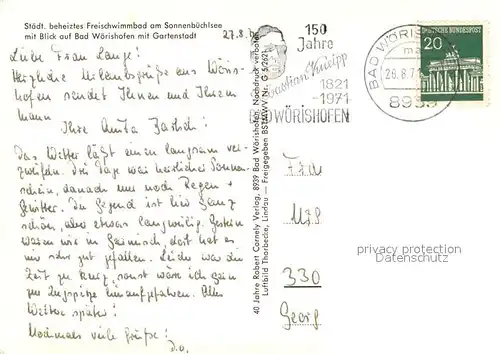 Städt. beheiztes Freischwimmbad am Sonnenbüchlsee
mit Blick auf Bad Wörishofen mit Gartenstadt
27.8.
Liebe Frau Lange!
Herzliche Urlaubsgrüße aus Wöris-
hofen sendet Ihnen und Ihrem
Mann
Ihre Anita
Das Wetter läßt einen langsam ver-
zweifeln. Drei Tage war herrlicher Sonnen-
schein, danach nur noch Regen +
Gewitter. Die Gegend ist hier ganz
schön, aber etwas langweilig. Gestern
waren wir in Garmisch, dort hat es
mir sehr gut gefallen. Leider war die
Zeit zu kurz, sonst wäre ich gern
zur Zugspitze hinaufgefahren. Alles
Weitere später!
Nochmals viele Grüße!
D.O.
40 Jahre Robert Cornely Verlag, 8939 Bad Wörishofen, Nachdruck verboten
Luftbild Thorbecke, Lindau — Freigegeben BSTMWV Nr. G 5/2121
150
Jahre
Sebastian Kneipp
1821
-1971
BAD WÖRISHOFEN
BAD WÖRIS
26.8.71
8939
DEUTSCHE BUNDESPOST
20
Frau
330
Georg
privacy protection
Datenschutz